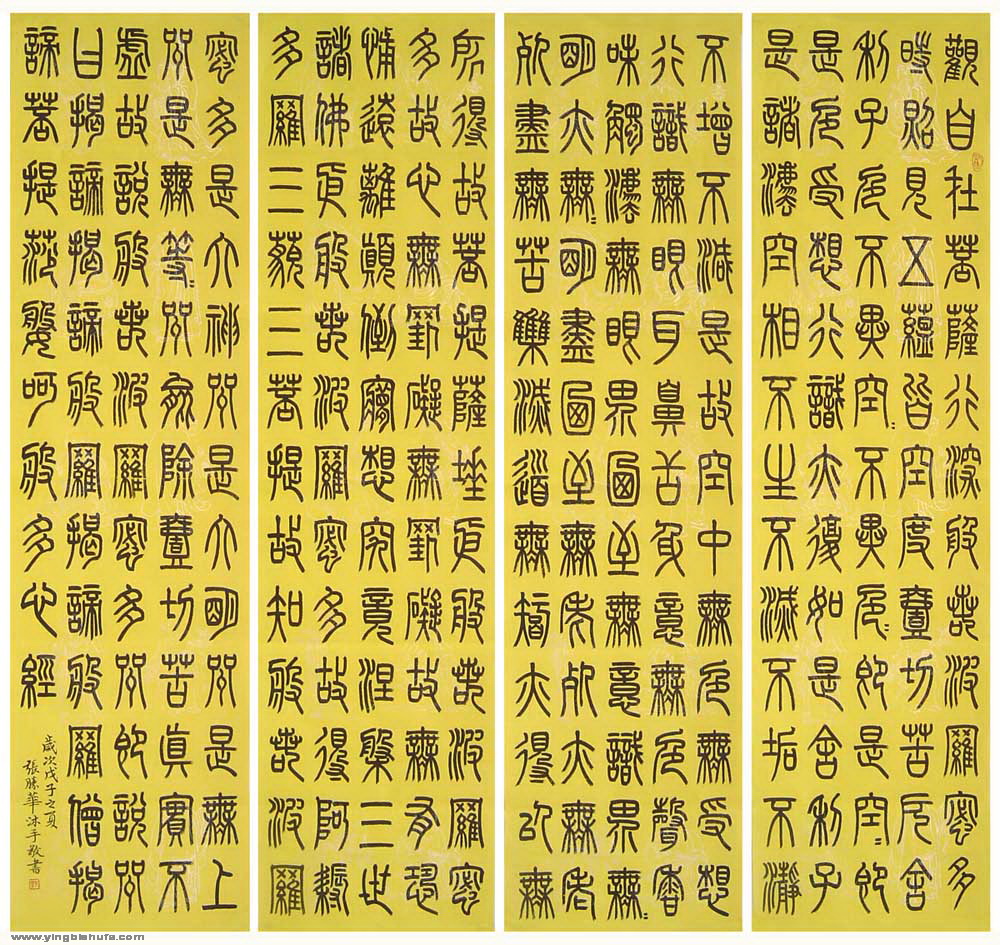 觀自在菩薩行深般若波羅蜜多
時照見五蘊皆空度壹切苦厄舍
利子色不異空〻不異色〻即是空〻即
是色受想行識亦復如是舍利子
是諸法空相不生不滅不垢不淨
不增不減是故空中無色無受想
行識無眼耳鼻舌身意無色聲香
味觸法無眼界乃至無意識界無〻
明亦無〻明盡乃至無老死亦無老
死盡無苦集滅道無智亦得以無
所得故菩提薩埵依般若波羅蜜
多故心無罣礙無罣礙故無有恐
怖遠離顛倒夢想究竟涅槃三世
諸佛依般若波羅蜜多故得阿耨
多羅三藐三菩提故知般若波羅
蜜多是大神咒是大明咒是無上
咒是無等〻咒能除壹切苦真實不
虛故說般若波羅蜜多咒即說咒
曰揭諦揭諦般羅揭諦般羅僧揭
諦菩提莎婆呵般多心經
歲次戊子之夏
張勝華沐手敬書
www.yingbishufa.com